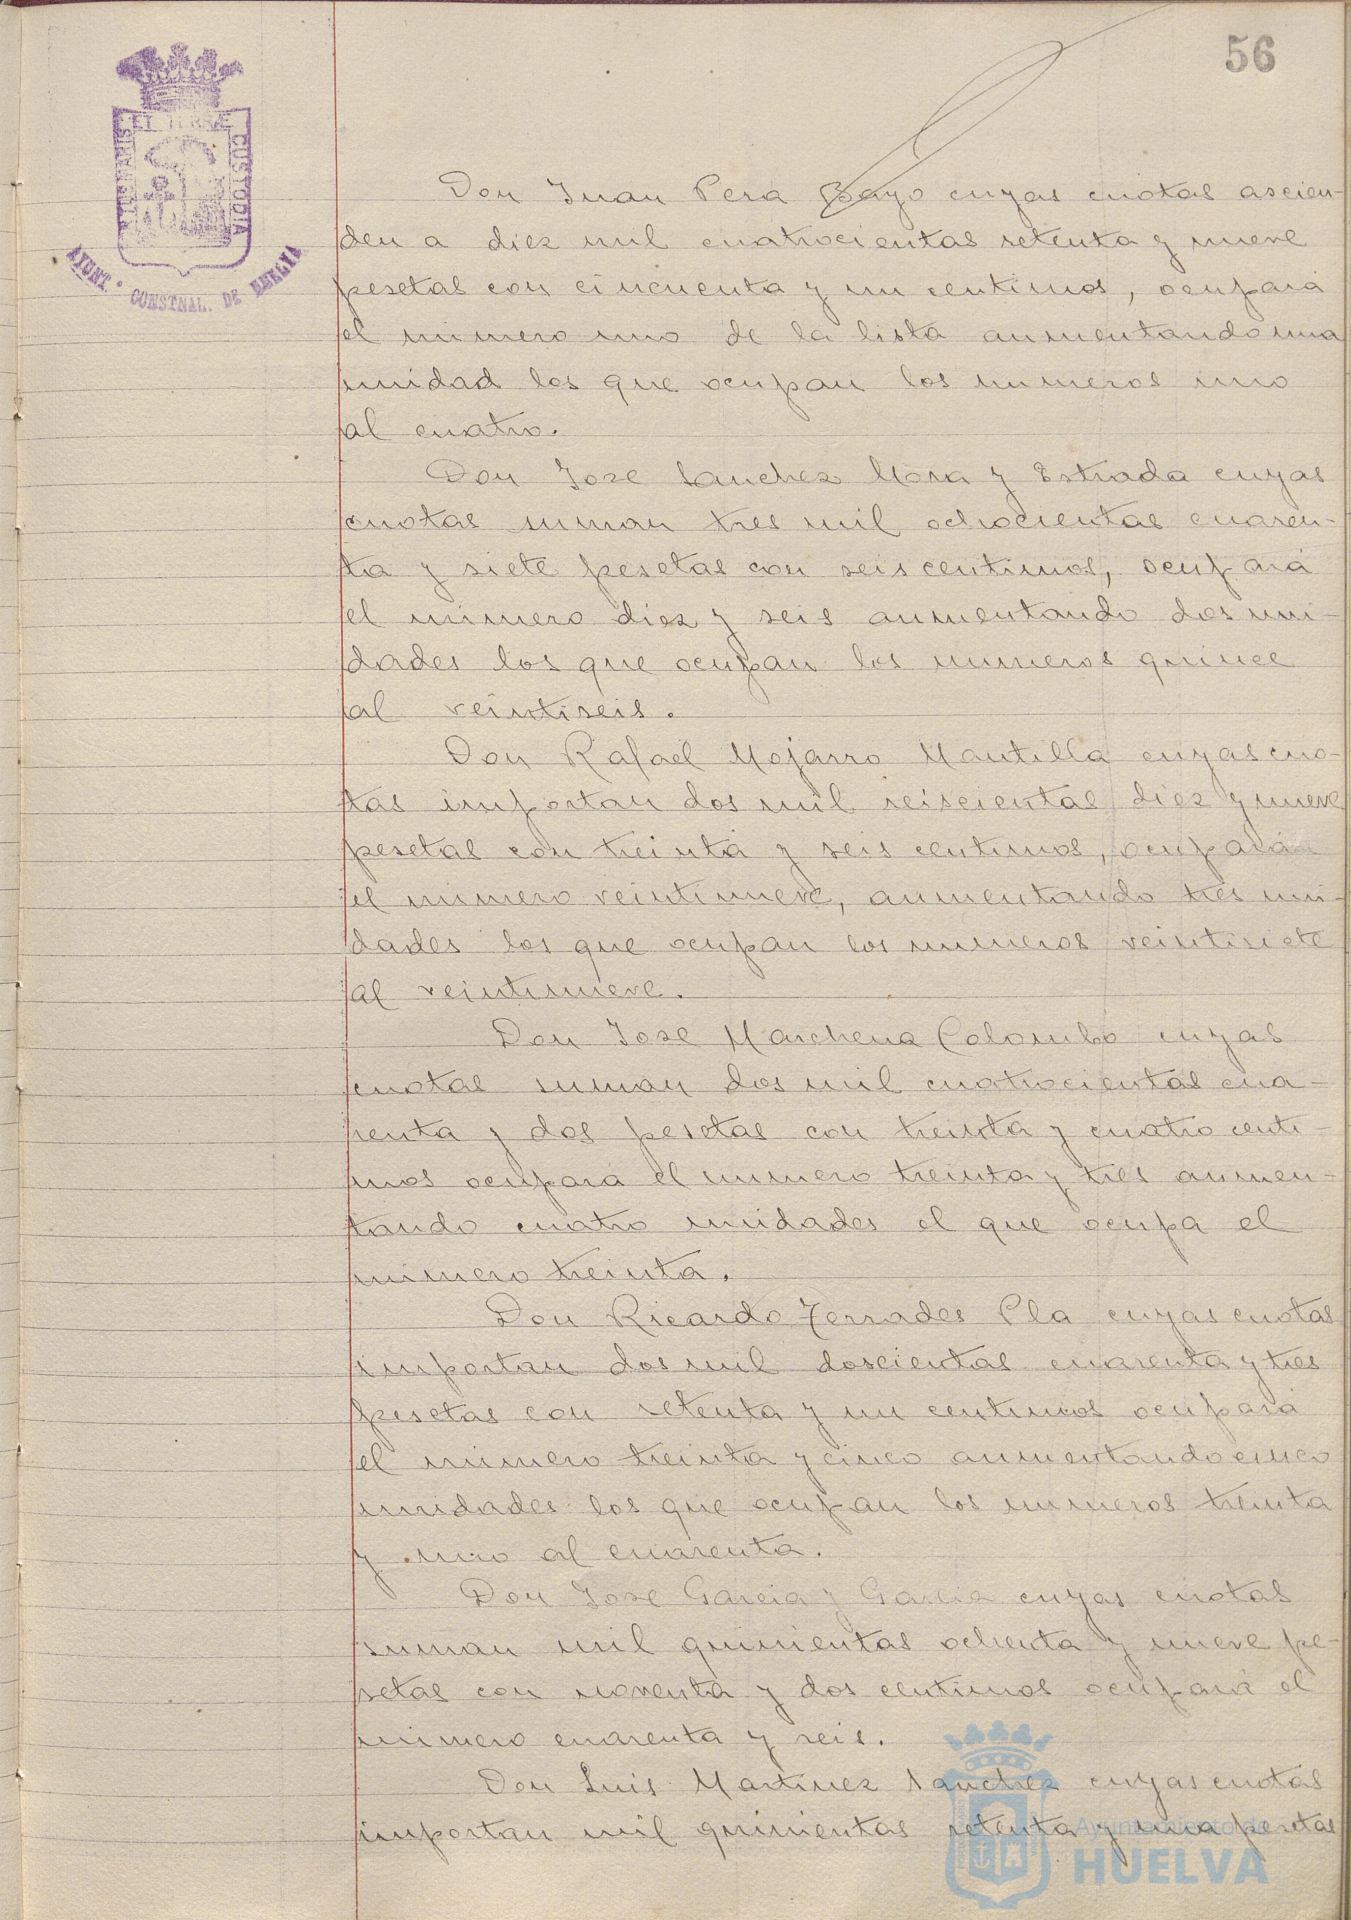 56
PORTUS MARIS
ET TERRÆ
CUSTODIA
AYUNT.º CONSTNAL. DE HUELVA
Don Juan Pera Bayo cuyas cuotas ascien-
den a diez mil cuatrocientas setenta y nueve
pesetas con cincuenta y un centimos, ocupará
el número uno de la lista aumentando una
unidad los que ocupan los números uno
al cuatro.
Don Jose Sanchez Mora y Estrada cuyas
cuotas suman tres mil ochocientas cuaren-
ta y siete pesetas con seis centimos, ocupará
el número diez y seis aumentando dos uni-
dades los que ocupan los números quince
al veintiseis.
Don Rafael Mojarro Mantilla cuyas cuo-
tas importan dos mil seiscientas diez y nueve
pesetas con treinta y seis centimos, ocupará
el número veintinueve, aumentando tres uni-
dades los que ocupan los números veintisiete
al veintinueve.
Don Jose Marchena Colombo cuyas
cuotas suman dos mil cuatrocientas cua-
renta y dos pesetas con treinta y cuatro centi-
mos ocupará el número treinta y tres aumen-
tando cuatro unidades el que ocupa el
número treinta.
Don Ricardo Terrades Pla cuyas cuotas
importan dos mil doscientas cuarenta y tres
pesetas con setenta y un centimos ocupará
el número treinta y cinco aumentando cinco
unidades los que ocupan los números treinta
y uno al cuarenta.
Don Jose Garcia y Garcia cuyas cuotas
suman mil quinientas ochenta y nueve pe-
setas con noventa y dos centimos ocupará el
número cuarenta y seis.
Don Luis Martinez Sanchez cuyas cuotas
importan mil quinientas setenta y una pesetas
Ayuntamiento de
HUELVA